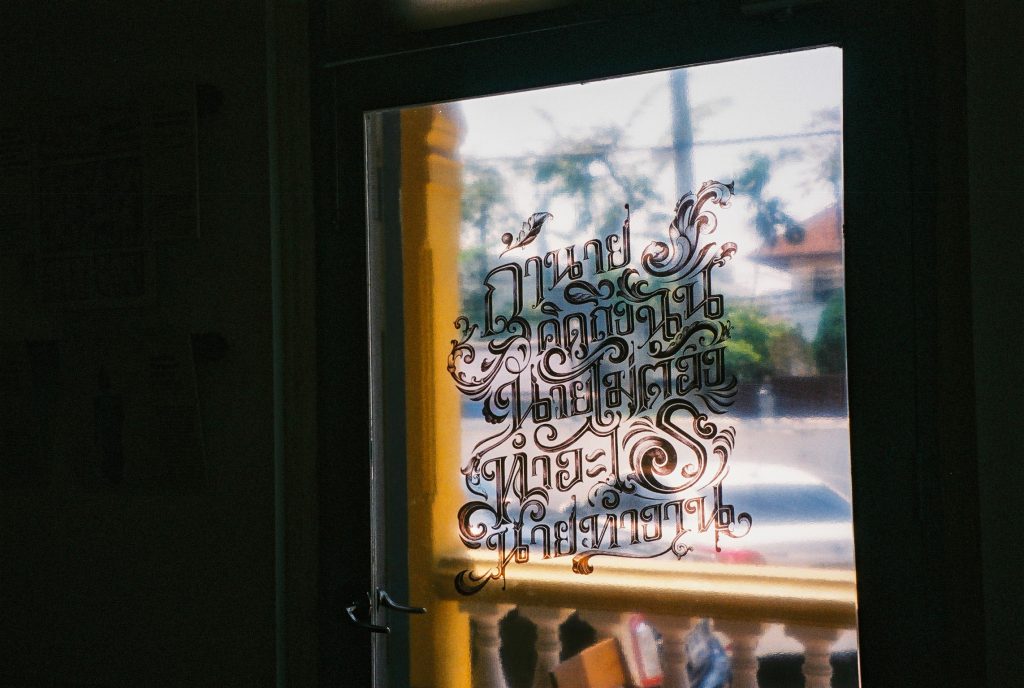 ถ้านาย
คิดถึงฉัน
นายไม่ต้อง
ทำอะไร
นายทำงาน